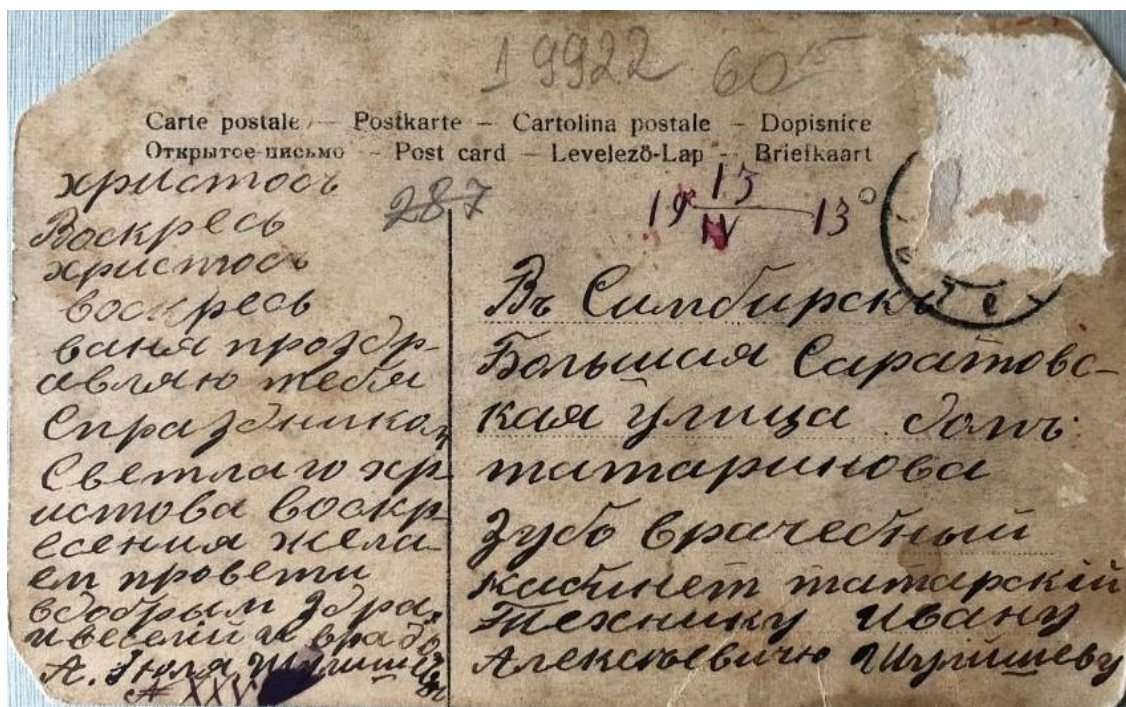 19922 60
Carte postale — Postkarte — Cartolina postale — Dopisnice
Открытое письмо — Post card — Levelező-Lap — Briefkaart
287
19 13/IV 13
христось
Воскресь
христось
воскресь
ваня проздр-
авляю тебя
Спраздником
Светлаго хр-
истова воскр-
есения жела-
ем провети
вдобрым здра.
ивеселии и
А. Шуми
XXV
Въ Симбирскъ
Большая Саратовс-
кая улица домъ
татаринова
Зубо врачебный
кабинет татарскій
Технику Ивану
Алексеевичю